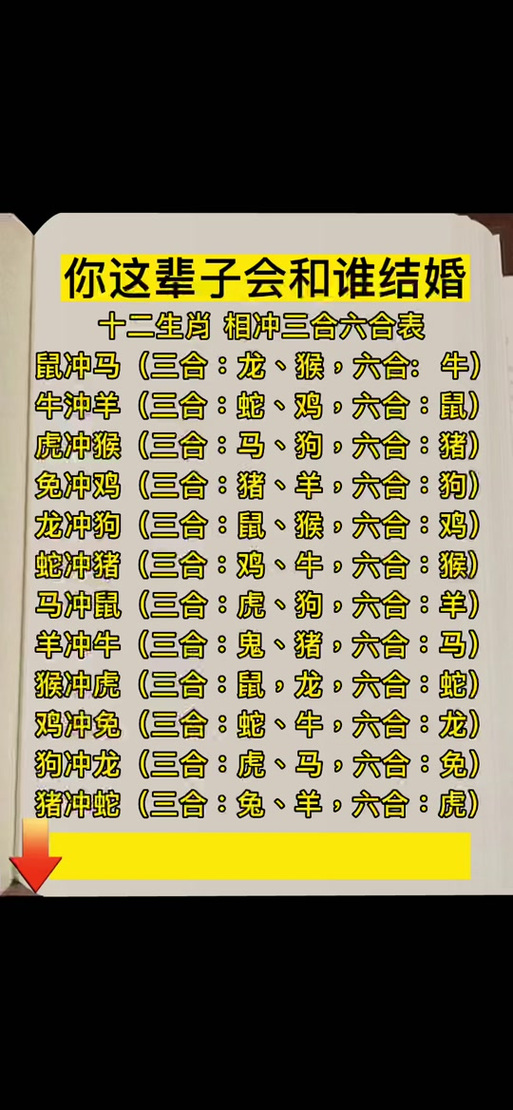 你这辈子会和谁结婚
十二生肖 相冲三合六合表
鼠冲马（三合：龙、猴，六合: 牛）
牛沖羊（三合：蛇、鸡，六合：鼠）
虎冲猴（三合：马、狗，六合：猪）
兔冲鸡（三合：猪、羊，六合：狗）
龙冲狗（三合：鼠、猴，六合：鸡）
蛇冲猪（三合：鸡、牛，六合：猴）
马冲鼠（三合：虎、狗，六合：羊）
羊冲牛（三合：鬼、猪，六合：马）
猴冲虎（三合：鼠，龙，六合：蛇）
鸡冲兔（三合：蛇、牛，六合：龙）
狗冲龙（三合：虎、马，六合：兔）
猪冲蛇（三合：兔、羊，六合：虎）